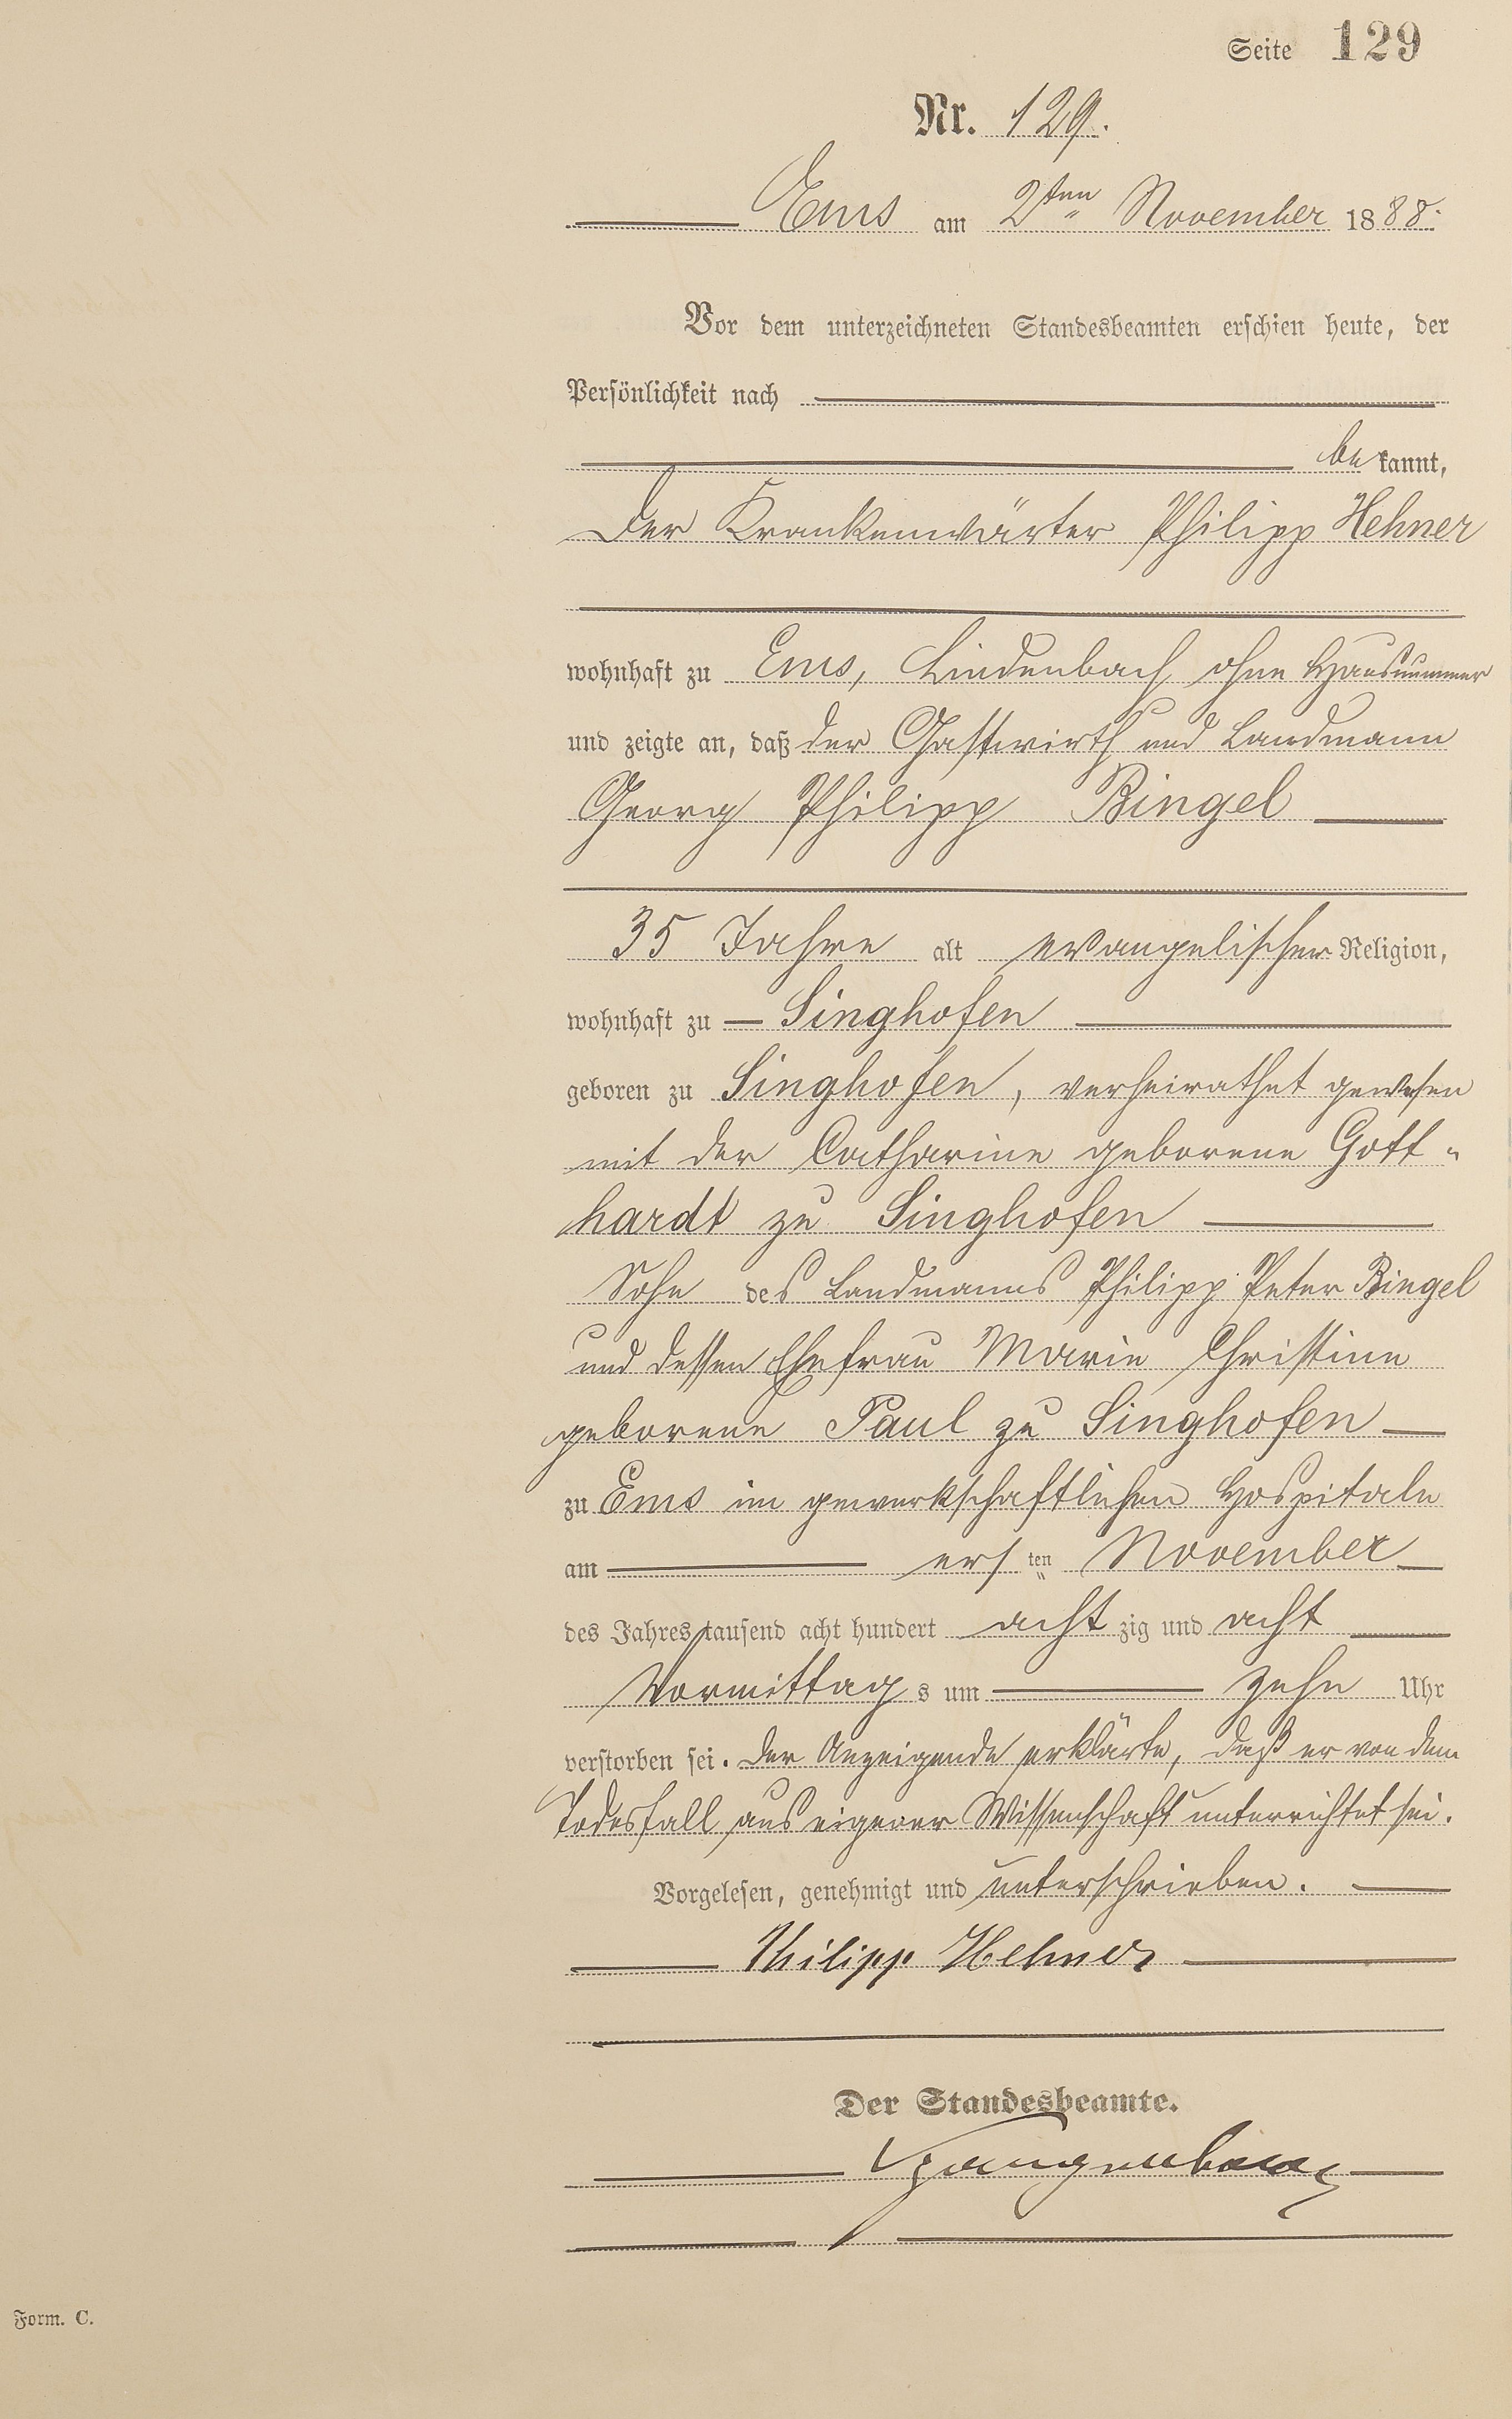 Seite 129
Nr. 129.
Ems am 2ten November 1888.
Vor dem unterzeichneten Standesbeamten erschien heute, der
Persönlichkeit nach
bekannt,
der Krankenwärter Philipp Hehner
wohnhaft zu Ems, Lindenbach ohne Hausnummer
und zeigte an, daß der Gastwirth und Landmann
Georg Philipp Bingel
35 Jahre alt evangelischer Religion,
wohnhaft zu Singhofen
geboren zu Singhofen, verheirathet gewesen
mit der Catharine geborene Gott-
hardt zu Singhofen
Sohn des Landmanns Philipp Peter Bingel
und dessen Ehefrau Marie Christine
geborene Paul zu Singhofen
zu Ems im gewerkschaftlichen Hospitale
am ersten November
des Jahres tausend acht hundert achtzig und acht
Vormittags um zehn Uhr
verstorben sei. Der Anzeigende erklärte, daß er von dem
Todesfall aus eigener Wissenschaft unterrichtet sei.
Vorgelesen, genehmigt und unterschrieben.
Philipp Hehner
Der Standesbeamte.
Form. C.